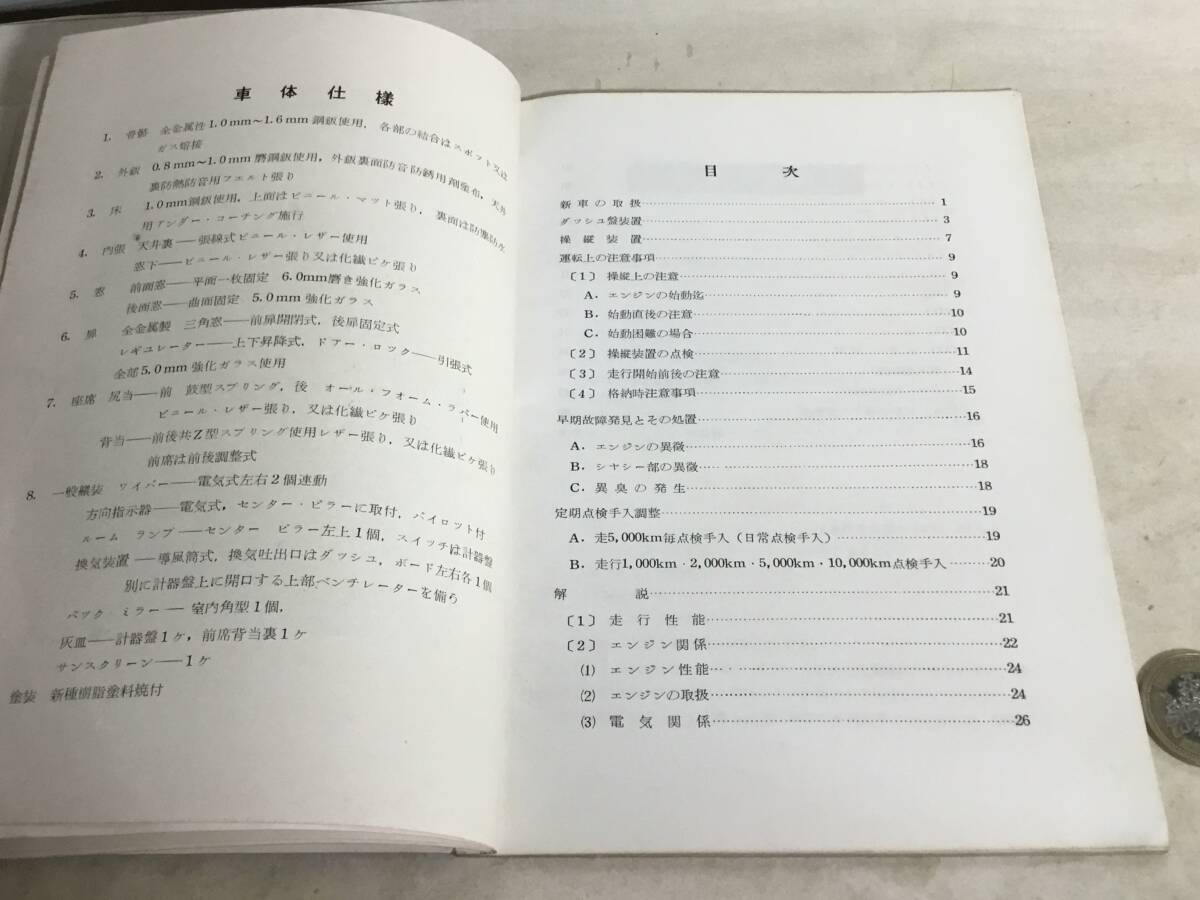 車体仕様
1. 骨骼 全金属性1.0mm～1.6mm鋼鈑使用，各部の結合はスポット又は
ガス熔接
2. 外鈑 0.8mm～1.0mm磨鋼鈑使用，外鈑裏面防音防銹用剤塗布，天井
裏防熱防音用フエルト張り
3. 床 1.0mm鋼鈑使用，上面はビニール・マット張り，裏面は防塵防水
用アンダー・コーチング施行
4. 内張 天井裏――張線式ビニール・レザー使用
窓下――ビニール・レザー張り又は化繊ビケ張り
5. 窓 前面窓――平面一枚固定 6.0mm磨き強化ガラス
後面窓――曲面固定 5.0mm強化ガラス
6. 扉 全金属製 三角窓――前扉開閉式，後扉固定式
レギユレーター――上下昇降式，ドアー・ロック――引張式
全部5.0mm強化ガラス使用
7. 座席 尻当――前 鼓型スプリング，後 オール・フォーム・ラバー使用
ビニール・レザー張り，又は化繊ビケ張り
背当――前後共Z型スプリング使用レザー張り，又は化繊ビケ張り
前席は前後調整式
8. 一般艤装 ワイパー――電気式左右2個連動
方向指示器――電気式，センター・ピラーに取付，パイロット付
ルーム ランプ――センター ピラー左上1個，スイッチは計器盤
換気装置――導風筒式，換気吐出口はダッシュ，ボード左右各1個
別に計器盤上に開口する上部ベンチレーターを備う
バック ミラー――室内角型1個，
灰皿――計器盤1ケ，前席背当裏1ケ
サンスクリーン――1ケ
塗装 新種樹脂塗料焼付
目次
新車の取扱……1
ダッシユ盤装置……3
操縦装置……7
運転上の注意事項……9
〔1〕操縦上の注意……9
A．エンジンの始動迄……9
B．始動直後の注意……10
C．始動困難の場合……10
〔2〕操縦装置の点検……11
〔3〕走行開始前後の注意……14
〔4〕格納時注意事項……15
早期故障発見とその処置……16
A．エンジンの異徴……16
B．シヤシー部の異徴……18
C．異臭の発生……18
定期点検手入調整……19
A．走5,000km毎点検手入（日常点検手入）……19
B．走行1,000km・2,000km・5,000km・10,000km点検手入……20
解説……21
〔1〕走行性能……21
〔2〕エンジン関係……22
(1) エンジン性能……24
(2) エンジンの取扱……24
(3) 電気関係……26